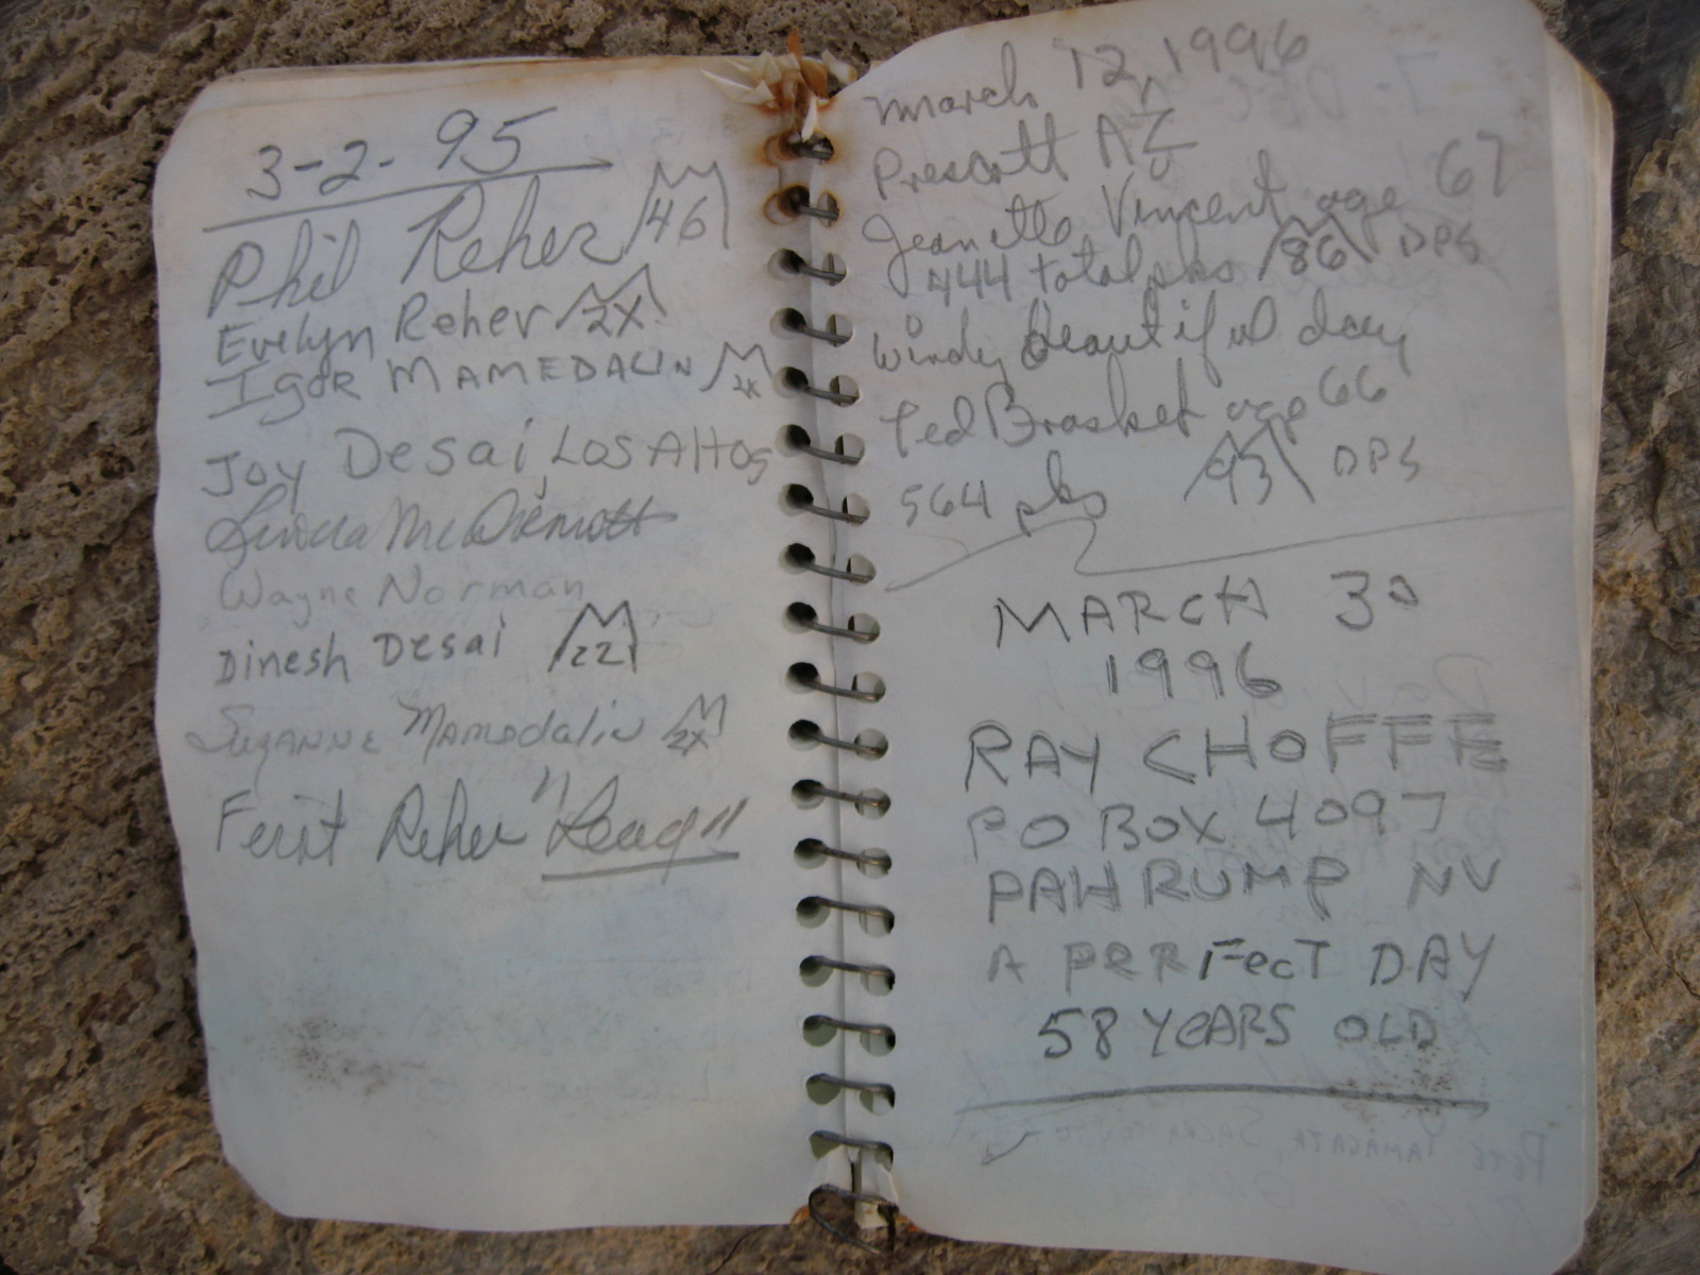 3-2-95
Phil Reher 46
Evelyn Reher 2X
IGOR MAMEDALIN 2X
JOY Desai, LOS AltOS
Linda McDermott
Wayne Norman
Dinesh Desai 22
SUZANNE Mamedalin 2X
Ferit Reher "
March 12, 1996
Prescott AZ
Jeanette Vincent age 67
444 total pks 86 DPS
Windy beautiful day
Ted Brasket age 66
564 pks 93 DPS
MARCH 30
1996
RAY CHOFFE
PO BOX 4097
PAHRUMP NV
A PERFecT DAY
58 YEARS OLD